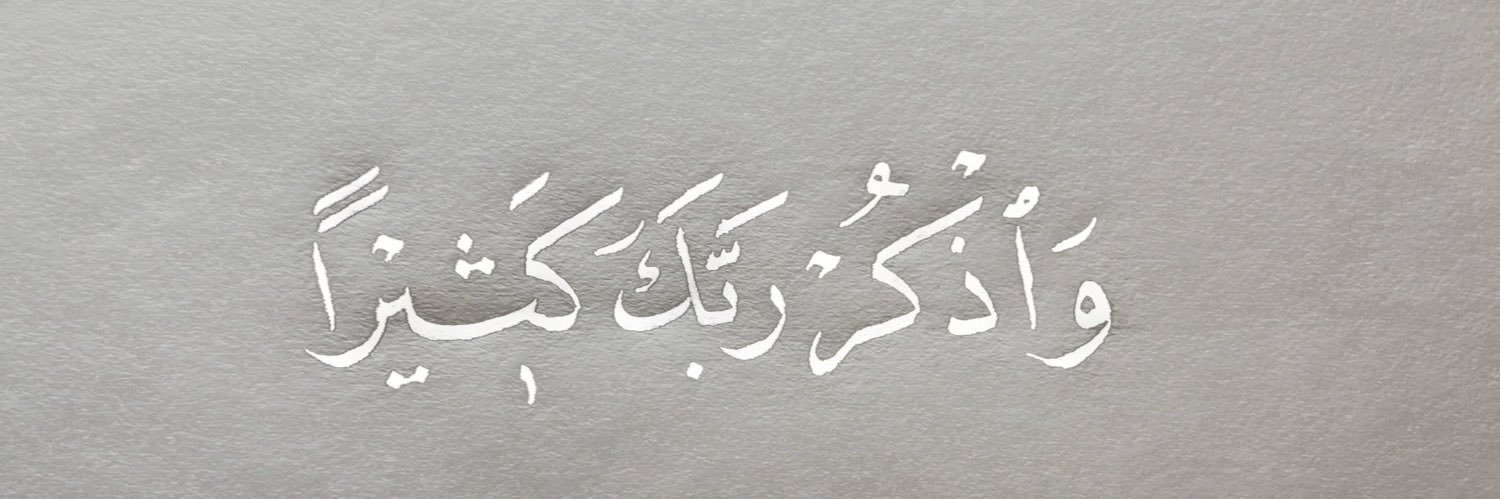 وَٱذْكُرْ رَبَّكَ كَثِيْرًا